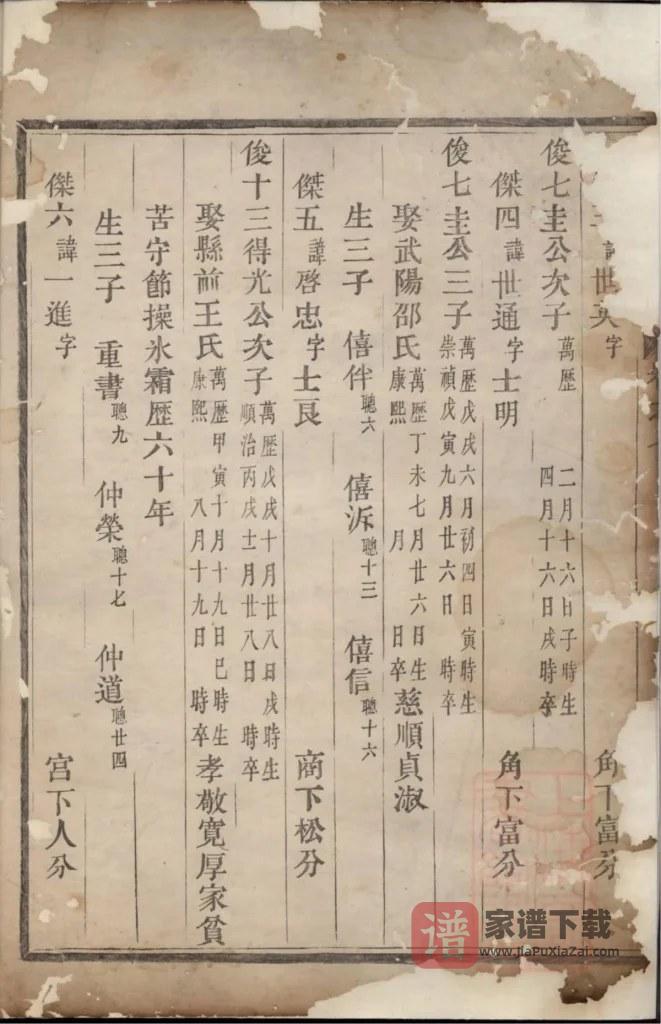 諱世 字 角下富分
俊七圭公次子 萬歷 二月十六日子時生 四月十六日戌時卒
傑四 諱世通 字士明 角下富分
俊七圭公三子 萬歷戊戌六月初四日寅時生 崇禎戊寅九月廿六日 時卒
娶武陽邵氏 萬歷丁未七月廿六日生 康熙 月 日卒 慈順貞淑
生三子 僖伴 聰六 僖泝 聰十三 僖信 聰十六
傑五 諱啓忠 字士良 商下松分
俊十三得光公次子 萬歷戊戌十月廿八日戌時生 順治丙戌十二月廿八日 時卒
娶縣前王氏 萬歷甲寅十月十九日巳時生 康熙 八月十九日 時卒 孝敬寬厚家貧
苦守節操氷霜歷六十年
生三子 重書 聰九 仲榮 聰十七 仲道 聰廿四
傑六 諱一進 字 宮下人分
谱 家谱下载
www.jiaPuXiaZai.com